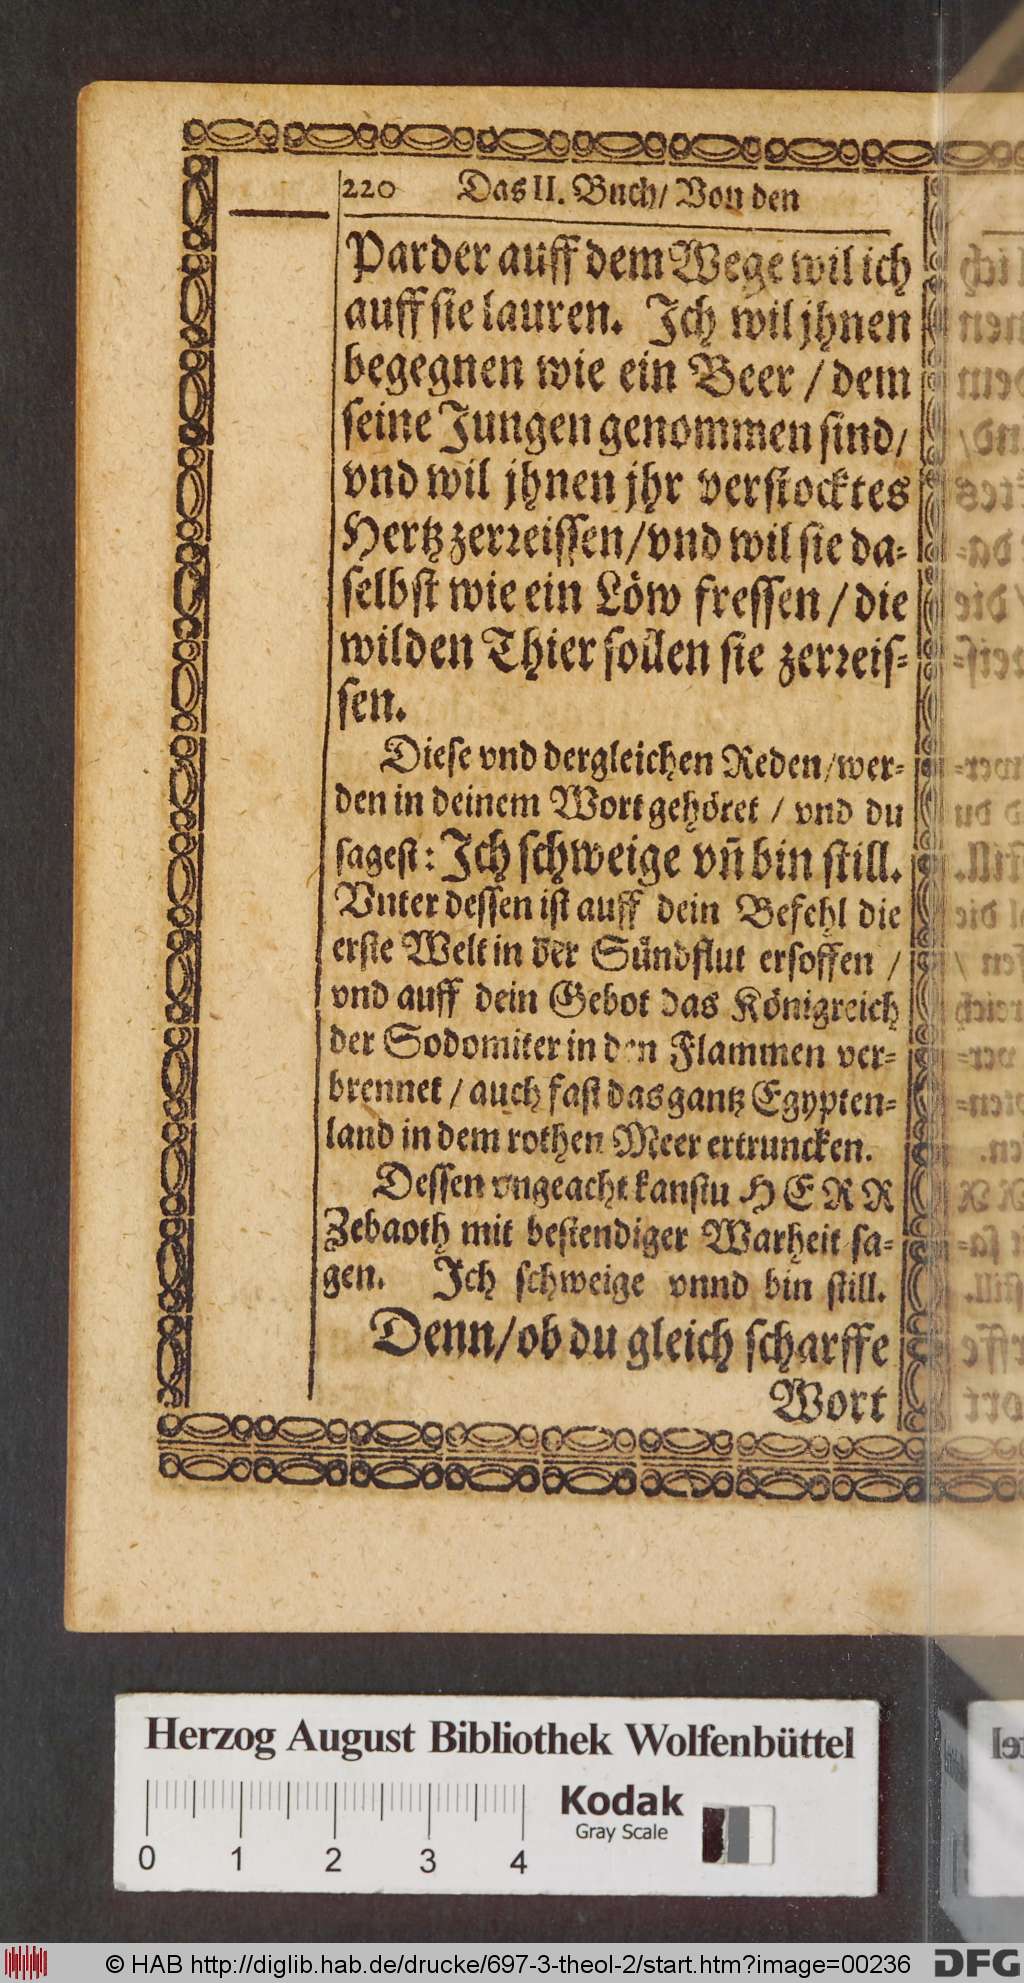 220 Das II. Buch/ Von den
Parder auff dem Wege wil ich
auff sie lauren. Ich wil jhnen
begegnen wie ein Beer / dem
seine Jungen genommen sind/
vnd wil jhnen jhr verstocktes
Hertz zerreissen/vnd wil sie da-
selbst wie ein Löw fressen / die
wilden Thier sollen sie zerreis-
sen.
Diese vnd dergleichen Reden/wer-
den in deinem Wort gehöret / vnd du
sagest: Ich schweige vñ bin still.
Vnter dessen ist auff dein Befehl die
erste Welt in der Sündflut ersoffen /
vnd auff dein Gebot das Königreich
der Sodomiter in den Flammen ver-
brennet / auch fast das gantz Egypten-
land in dem rothen Meer ertruncken.
Dessen vngeacht kanstu HERR
Zebaoth mit bestendiger Warheit sa-
gen. Ich schweige vnnd bin still.
Denn/ob du gleich scharffe
Wort
Herzog August Bibliothek Wolfenbüttel
0 1 2 3 4
Kodak
Gray Scale
© HAB http://diglib.hab.de/drucke/697-3-theol-2/start.htm?image=00236
DFG